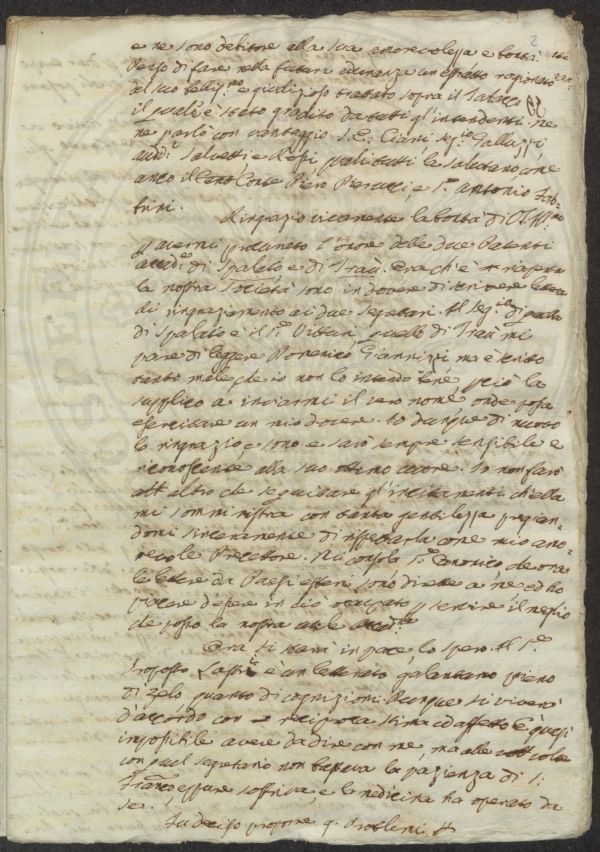 2
e ne sono debitore alla sua amorevolezza e bontà.
Penso di fare nella futura adunanza un estratto ragionato
del suo bellissmo e giudizioso trattato sopra il Tabacco
39
il quale è stato gradito da tutti gl'intendenti. Me
ne parlò con vantaggio S. E. Ciani, Segrio Galluzzi
audre Salvetti e Rossi, quali tutti la salutano, come
anco il Conte Piero Pierucci, e Sr Antonio Fab-
brini.
Ringrazio vivamente la bontà di
avermi proccurato l'onore delle due Patenti
di Spalato e di Traù. Ora chi è
la nostra Società sono in dovere di scrivere lettera
di ringraziamento ai due Segretari. Il Segrio di quella
di Spalato è il Sr quello di Traù mi
pare di leggere Domenico Giannizzi ma è scritto
tanto male che io non lo intendo bene, perciò la
supplico a inviarmi il vero nome, onde possa
esercitare un mio dovere. Io dunque di nuovo
la ringrazio, e sono e sarò sempre sensibile e
riconoscente alla suo ottimo cuore. Io non farò
altro che seguitare gl'incitamenti ch'ella
mi somministra con tanta gentilezza pregian-
domi sinceramente di rispettarla come mio amo-
revole Precettore. Mi consola Sr Canonico, che ora
le lettere da Paesi esteri sono dirette a me, ed ho
piacere d'essere in ciò occupato, e servire il meglio
che posso la nostra utile Accdia
Ora si starà in pace, lo spero. Il Sr
Proposto Lastri è un letterato, galantuomo pieno
di zelo, quanto di cognizioni. Dunque si viverà
d'accordo con reciproca stima ed affetto. È quasi
impossibile avere da dire con me, ma alle volte
con quel segretario non bastava la pazienza di S.
Franco, eppure soffriva, e la medicina ha operato da
se.
Fu deciso proporre 4. Problemi